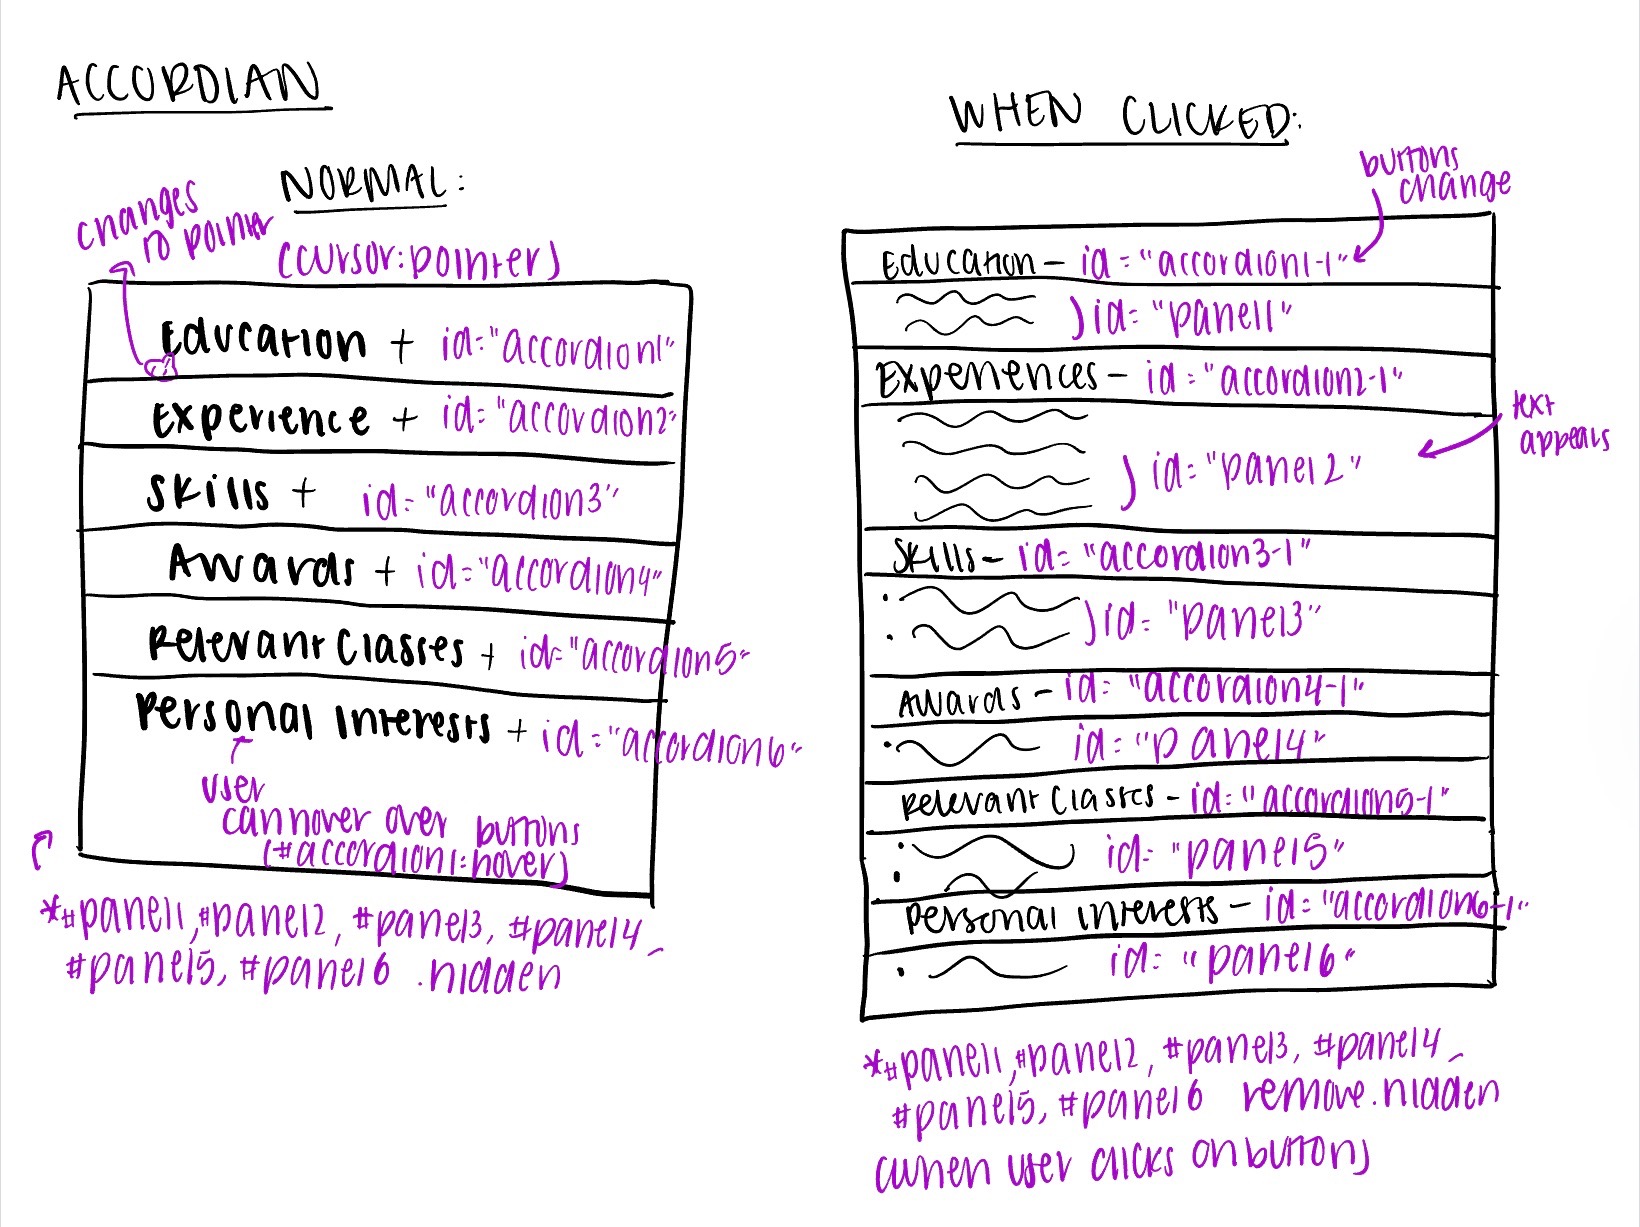 ACCORDIAN
NORMAL:
changes
to pointer
(cursor:pointer)
Education + id="accordion1"
Experience + id="accordion2"
Skills + id="accordion3"
Awards + id="accordion4"
Relevant Classes + id="accordion5"
Personal Interests + id="accordion6"
user
can hover over buttons
(#accordion1:hover)
*#panel1,#panel2, #panel3, #panel4,
#panel5, #panel6 .hidden
WHEN CLICKED:
buttons
change
Education - id="accordion1-1"
id="panel1"
Experiences - id="accordion2-1"
text
appears
id="panel2"
Skills - id="accordion3-1"
id="panel3"
Awards - id="accordion4-1"
id="panel4"
Relevant Classes - id="accordion5-1"
id="panel5"
Personal Interests - id="accordion6-1"
id="panel6"
*#panel1,#panel2, #panel3, #panel4,
#panel5, #panel6 remove.hidden
(when user clicks on button)